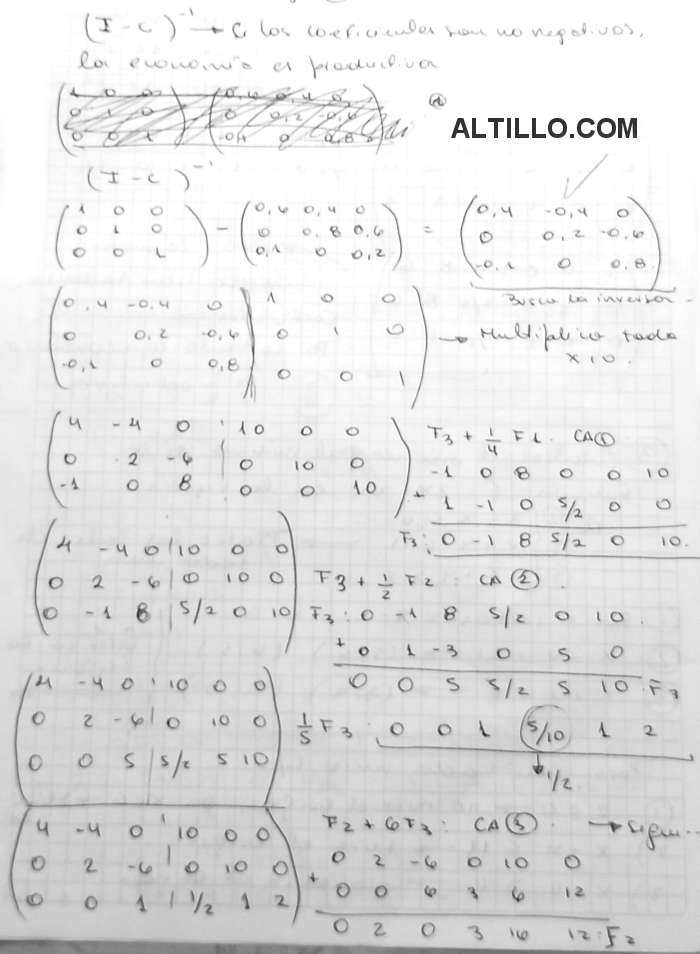 (I - C)⁻¹ → Si los coeficientes son no negativos,
la economía es productiva
ALTILLO.COM
(I - C)⁻¹
1 0 0 0,6 0,4 0 0,4 -0,4 0
0 1 0 - 0 0,8 0,6 = 0 0,2 -0,6
0 0 1 0,1 0 0,2 -0,1 0 0,8
Busco la inversa
0,4 -0,4 0 | 1 0 0
0 0,2 -0,6 | 0 1 0 → Multiplico todo
-0,1 0 0,8 | 0 0 1 x 10.
4 -4 0 | 10 0 0
0 2 -6 | 0 10 0
-1 0 8 | 0 0 10
F3 + 1/4 F1. CA ①
-1 0 8 0 0 10
+ 1 -1 0 5/2 0 0
F3: 0 -1 8 5/2 0 10.
4 -4 0 | 10 0 0
0 2 -6 | 0 10 0
0 -1 8 | 5/2 0 10
F3 + 1/2 F2: CA ②.
F3: 0 -1 8 5/2 0 10.
+ 0 1 -3 0 5 0
0 0 5 5/2 5 10 F3
4 -4 0 | 10 0 0
0 2 -6 | 0 10 0
0 0 5 | 5/2 5 10
1/5 F3: 0 0 1 5/10 1 2
1/2
4 -4 0 | 10 0 0
0 2 -6 | 0 10 0
0 0 1 | 1/2 1 2
F2 + 6F3: CA ③. → Sigue...
0 2 -6 0 10 0
+ 0 0 6 3 6 12
0 2 0 3 16 12: F2